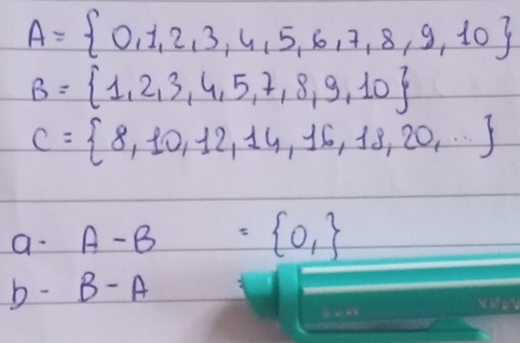 A = { 0,1,2,3,4,5,6,7,8,9,10}
B = {1,2,3,4,5,7,8,9,10}
C = {8,10,12,14,16,18,20,...}
a- A-B = {0,}
b- B-A =